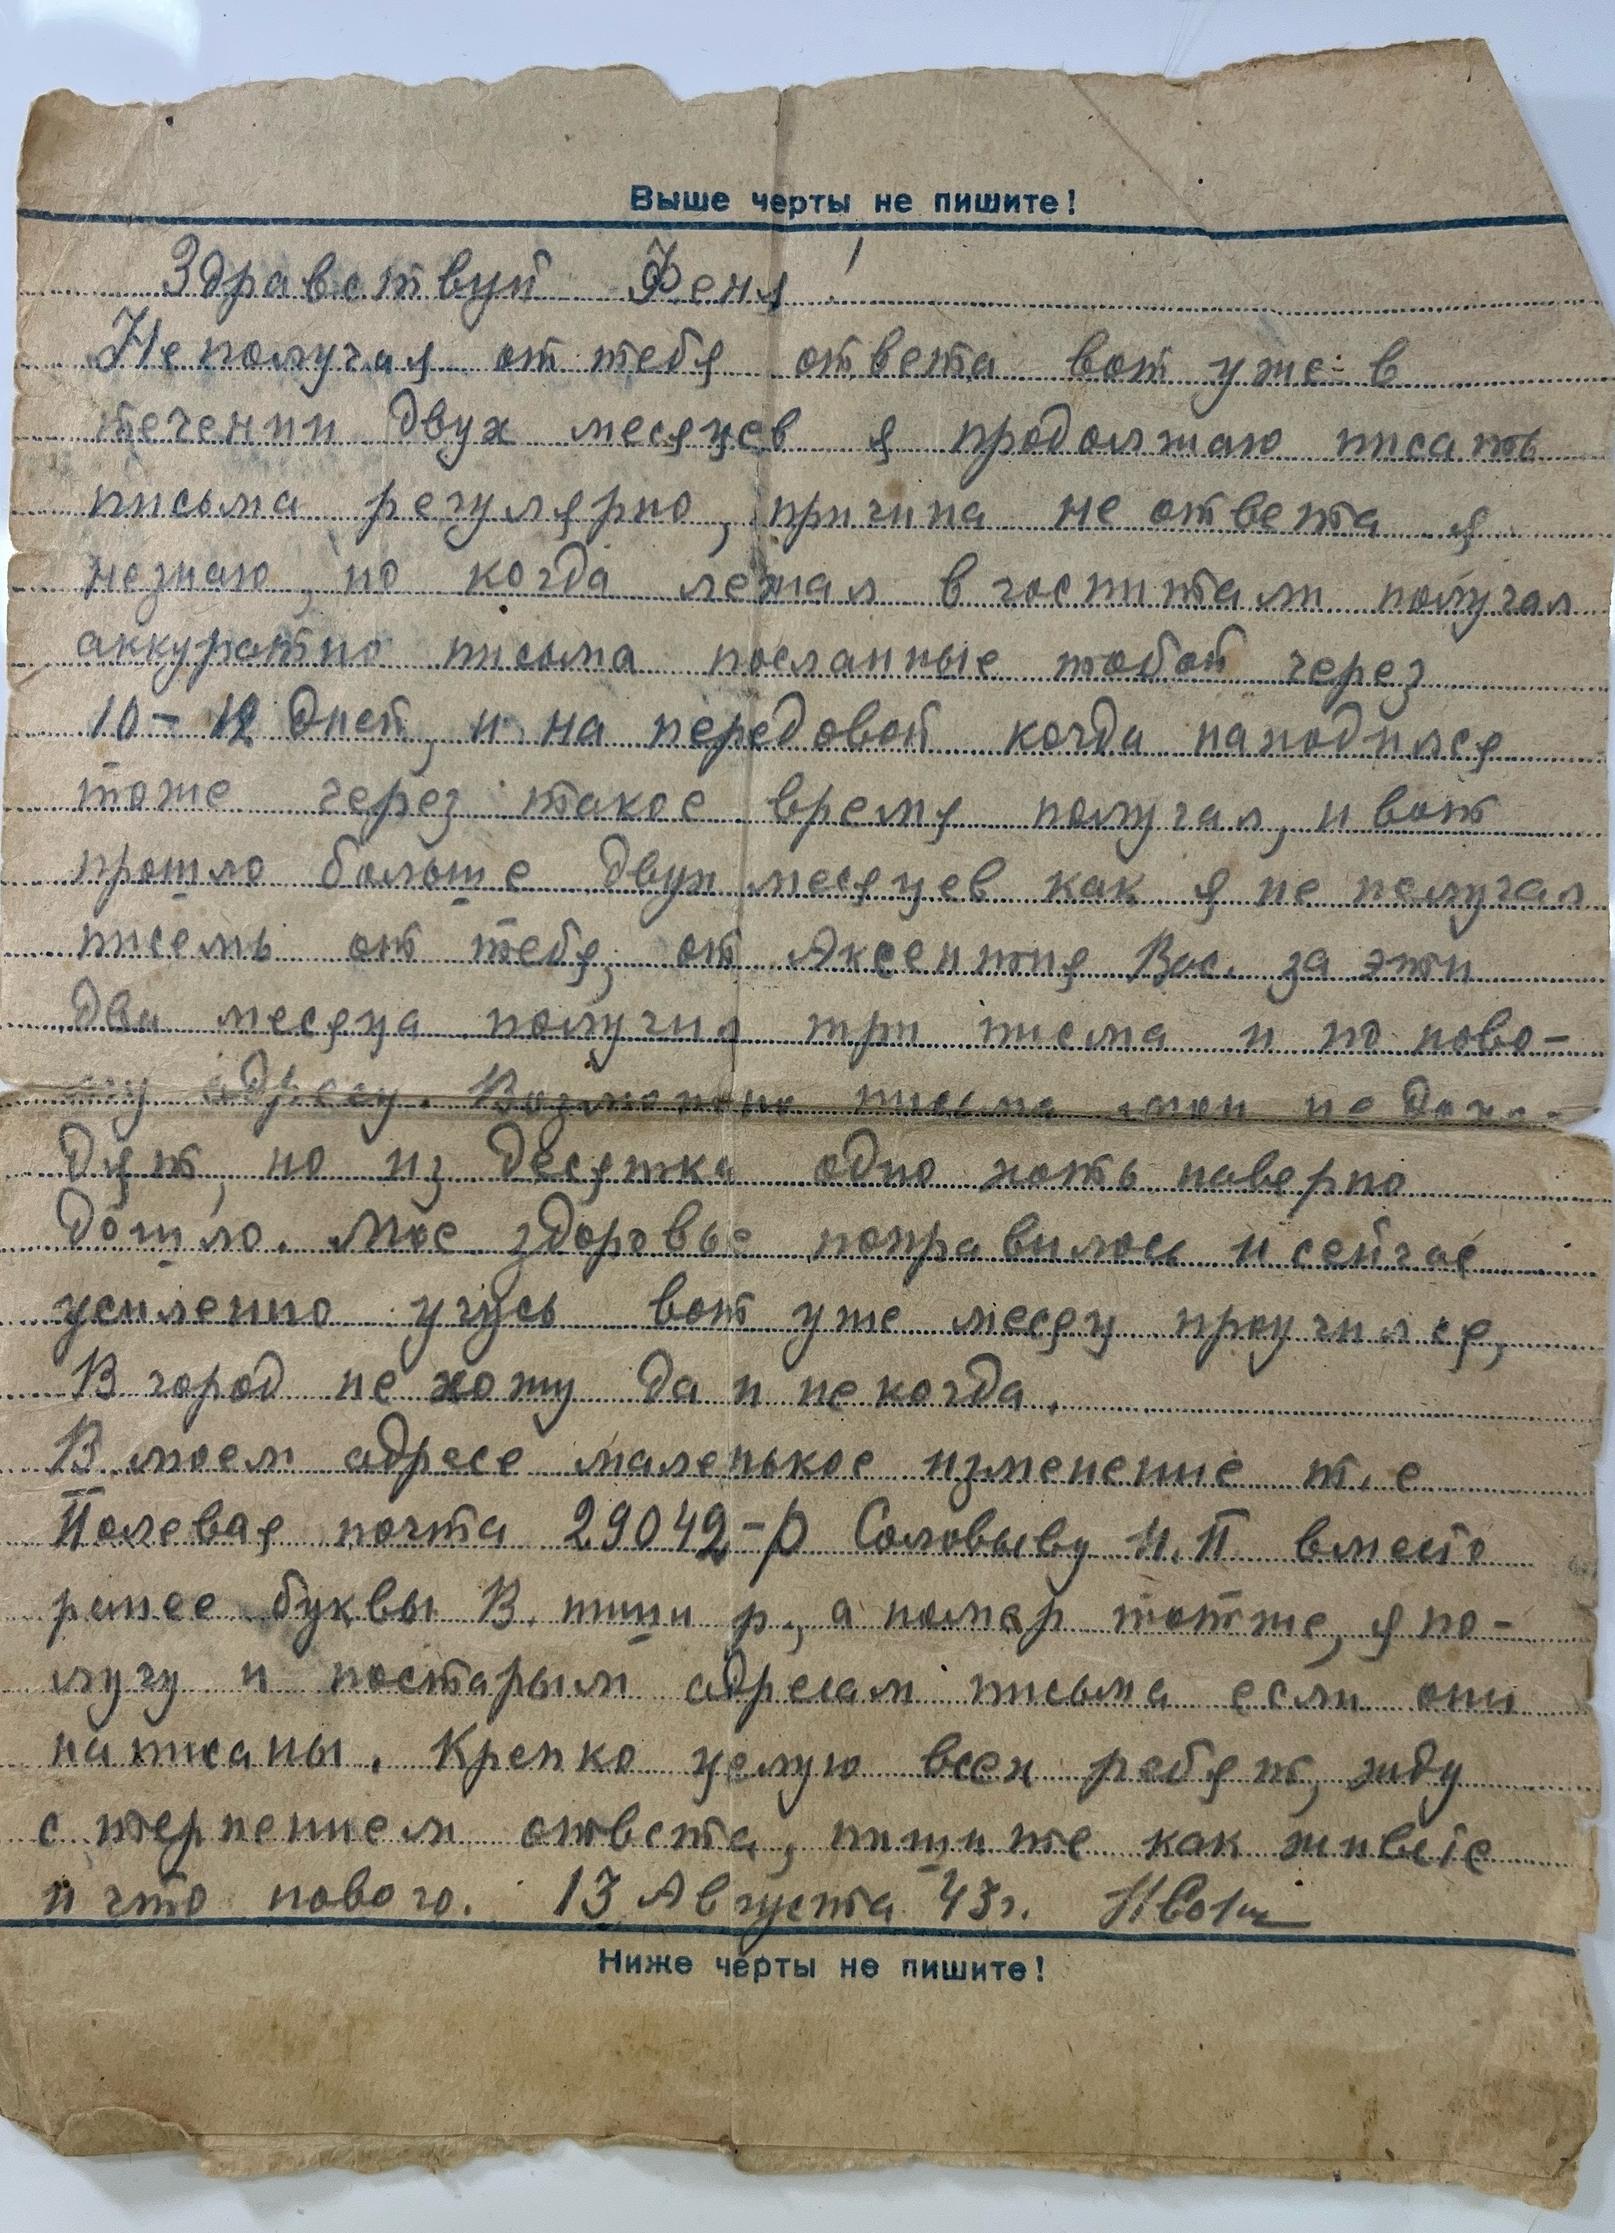 Выше черты не пишите!
Здравствуй Феня!
Неполучая от тебя ответа вот уже в
течении двух месяцев я продолжаю писать
письма регулярно, причина не ответа я
незнаю, но когда лежал в госпитали получал
аккуратно письма посланные тобой через
10-12 дней, и на передовой когда находился
тоже через такое время получал, и вот
прошло больше двух месяцев как я не получал
писемь от тебя, от Аксентия Вас. за эти
два месяца получил три писма и по ново-
му адресу. Возможно письма мои не дохо-
дят, но из десятка одно хоть наверно
дошло. Мое здоровье поправилось и сейчас
усиленно учусь вот уже месяц проучился,
В город не хожу да и некогда.
В моем адресе маленькое изменение т.е
Полевая почта 29042-р Соловьеву И.П вместо
ранее буквы В. пиши р., а номер тотже, я по-
лучу и постарым адресам письма если они
написаны. Крепко целую всех ребят, жду
с терпением ответа, пишите как живете
и что нового. 13 Августа 43г.
Ниже черты не пишите!